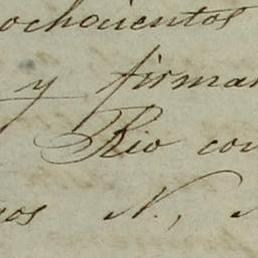 ochocientos
y firmar
Rio con
nos N., N